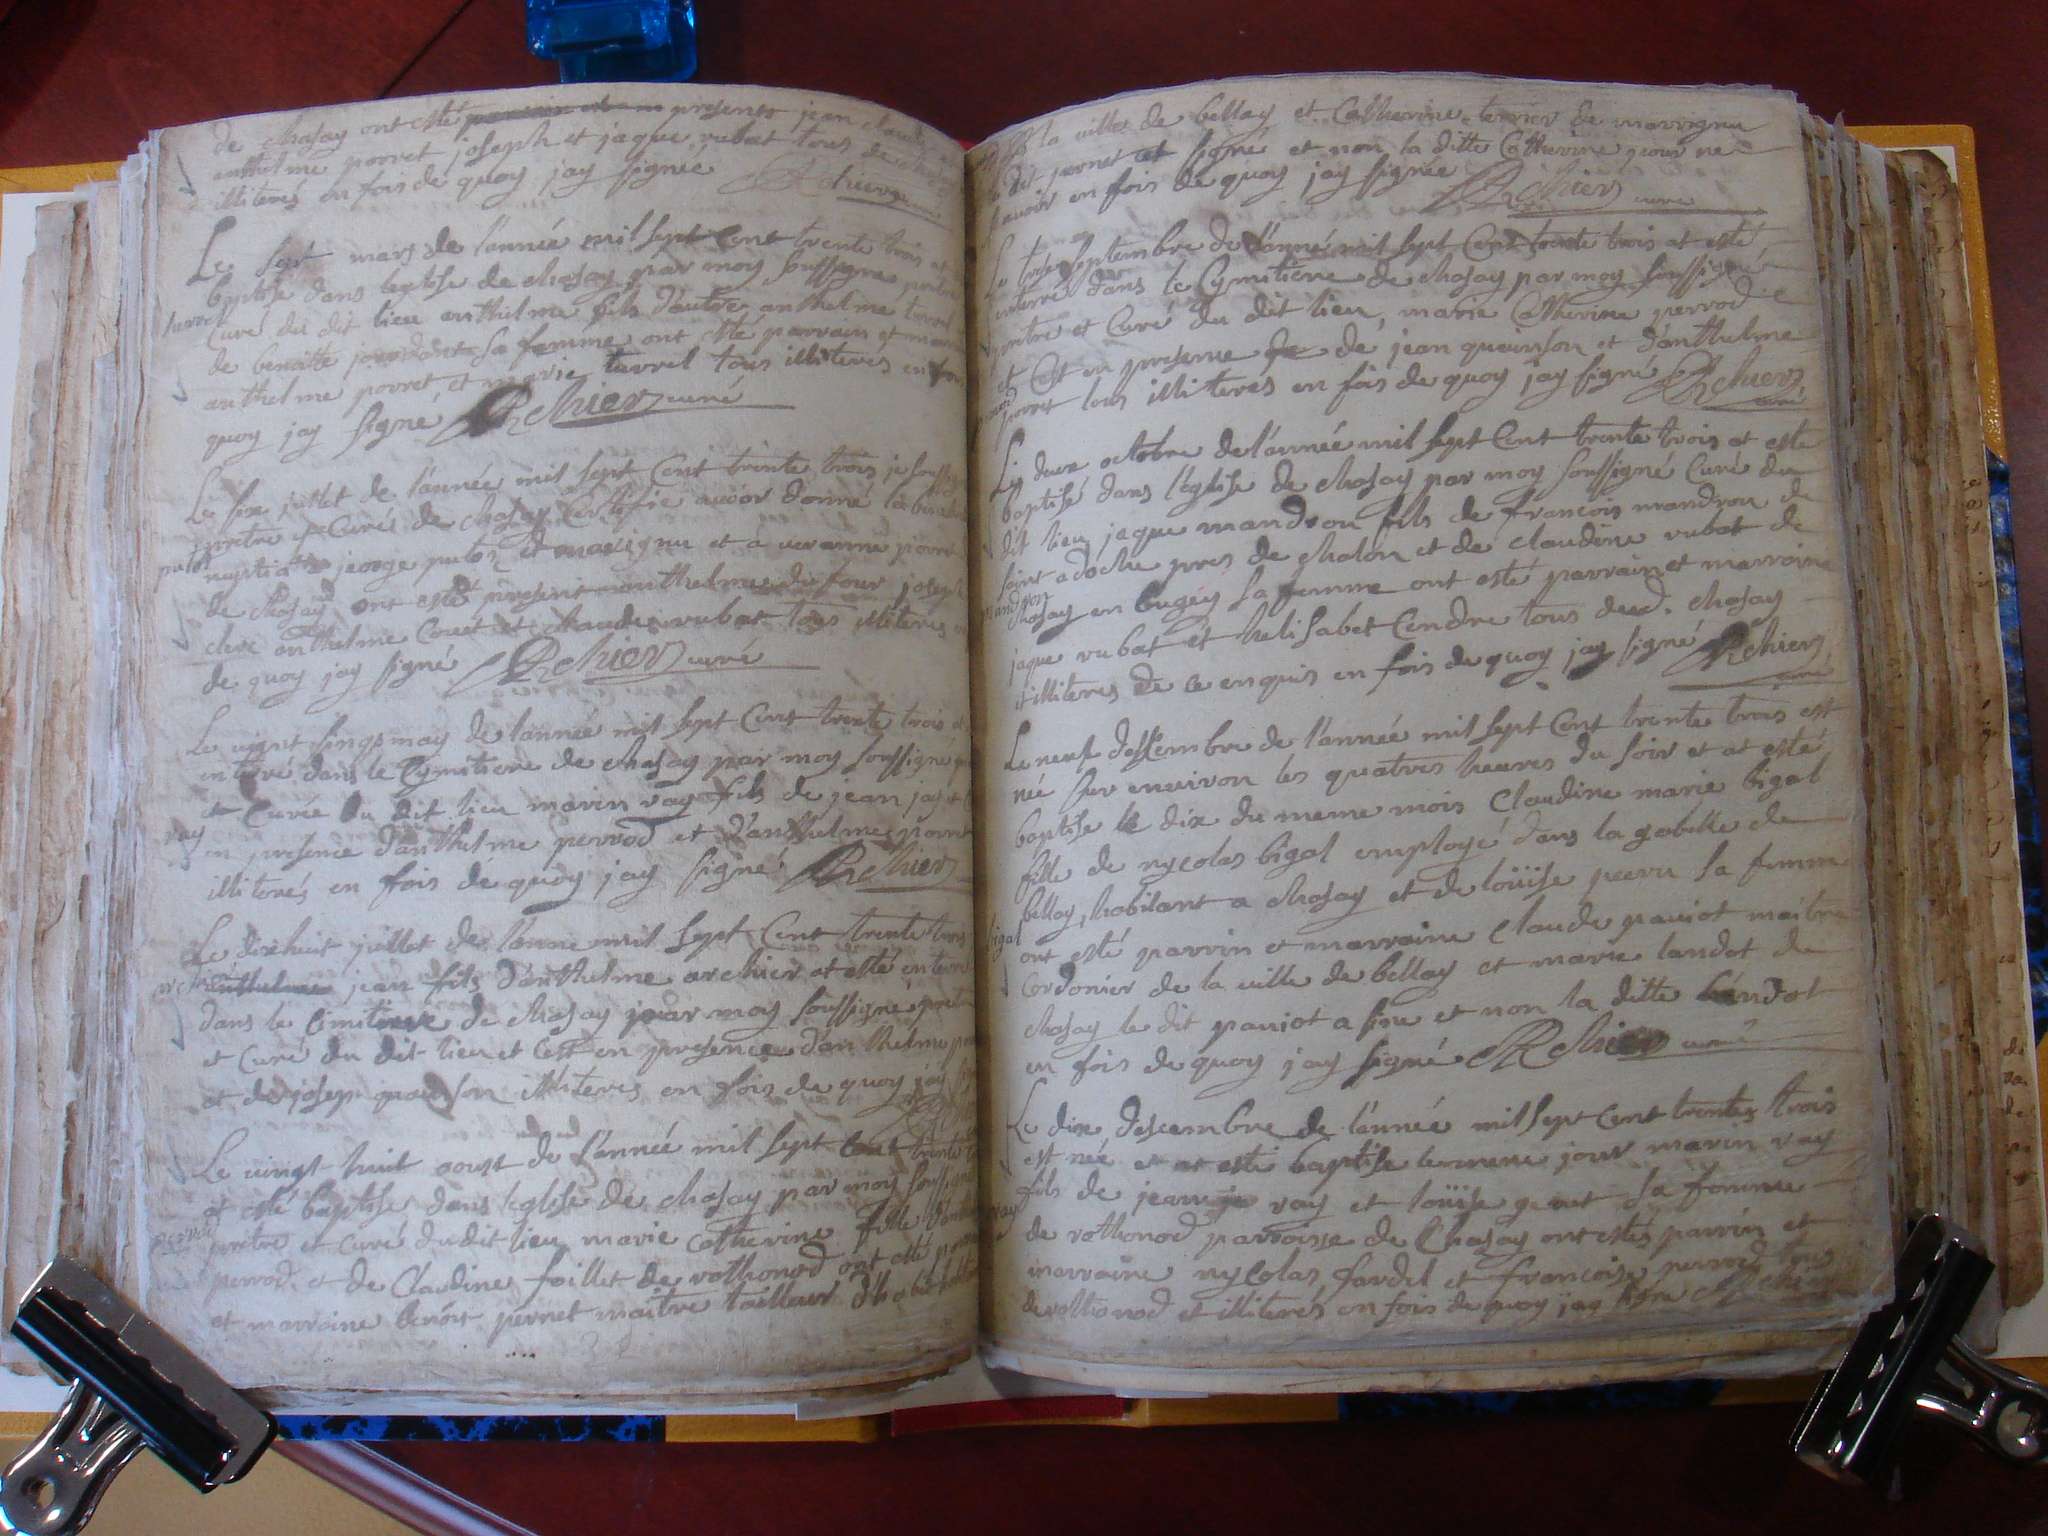 de chasay ont esté presents jean claude
anthelme porret joseph et jaque rubat tous de
illiterés en fois de quoy jay signee
Le sept mars de lannée mil sept cent trente trois at
baptise dans leglise de chasay par moy soussigne pretre
turrel
Cure du dit lieu anthelme fils dautre anthelme turrel
de benoitte sa femme ont esté parrain et
anthelme porret et marie turrel tous illiteres en fois
quoy jay signé Rchier curé
Le six jullet de lannée mil sept Cent trente trois je soussigné
pretre et Curé de chasay Certifie avoir donné la
nuptia a jeorge putoz de marignu et a porret
putoz
de chasay ont esté present anthelme du four joseph
clerc anthelme et claude rubat tous illiteres en
de quoy jay signé Rchier curé
Le vignt sinq may de lannée mil sept Cent trente trois at
enterré dans le Cymitiere de chasay par moy soussigné
et Curée du dit lieu marin ray fils de jean
ray
en presence danthelme perrod et danthelme porret
illiterés en fois de quoy jay signé Rchier
Le dixhuit jullet de lannee mil sept Cent trente trois
jean fils danthelme archier at esté enterré
dans le Cimitiere de chasay par moy soussigné pretre
et Curé du dit lieu et Cest en presence danthelme
et de josep quinson illiteres en fois de quoy jay
Le vingt huit aoust de lannée mil sept Cent trente
at esté baptise dans leglise de chasay par moy soussigné
perrod
pretre et curé dudit lieu marie catherine fille
perrod et de Claudine foillet de rothonod ont esté
et marraine benoit pernet maitre tailleur
la ville de bellay et Catherine terrier de marrignu
le dit pernet at signé et non la ditte Catherine pour ne
scavoir en fois de quoy jay signée Rchier curé
Le septembre de lannée mil sept Cent trente trois at esté
enterré dans le Cymitiere de chasay par moy soussigné
pretre et Curé du dit lieu marie Catherine perrod
et Cest en presence de jean quinson et danthelme
porret tous illiteres en fois de quoy jay signé Rchier
curé
Le deux octobre de lannée mil sept Cent trente trois at esté
baptisé dans leglise de chasay par moy soussigné Curé du
dit lieu jaque mandron fils de francois mandron de
saint adoche pres de chalon et de claudine rubat de
mandron
chasay en bugey sa femme ont esté parrain et marraine
jaque rubat et helisabet Cendre tous deux chasay
illiteres de ce enquis en fois de quoy jay signé Rchier
curé
Le neuf dessembre de lannée mil sept Cent trente trois est
né sur environ les quatres heures du soir et at esté
baptise le dix du meme mois Claudine marie bigal
fille de nycolas bigal employé dans la gabelle de
bellay habitant a chasay et de loüise sa femme
bigal
ont esté parrin et marraine Claude paviot maitre
Cordonier de la ville de bellay et marie landot de
chasay le dit paviot a sine et non la ditte landot
en fois de quoy jay signé Rchier curé
Le dix descembre de lannée mil sept cent trente trois
est née et at esté baptise lememe jour marin ray
fils de jean ray et loüise sa femme
ray
de rothonod parroisse de Chasay ont estés parrin et
marraine nycolas fardel et francoise perrod tous
de rothonod et illiterés en fois de quoy jay signe Rchier